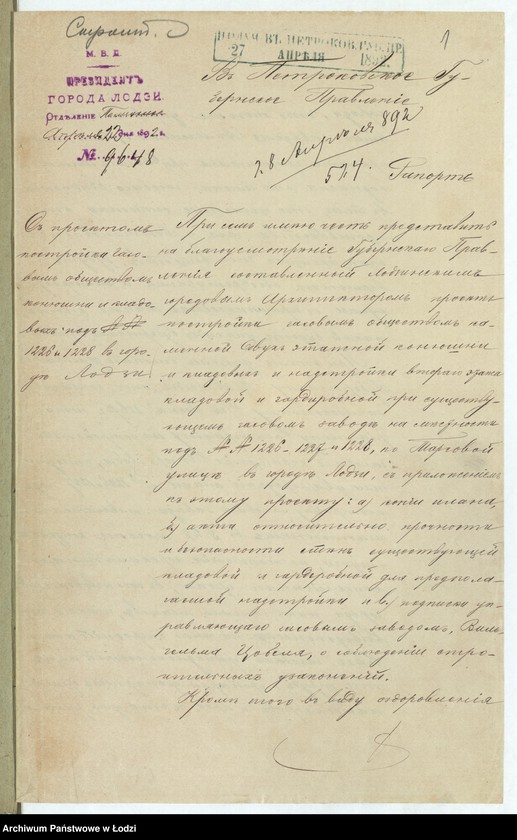 М. В. Д.
ПРЕЗИДЕНТЪ
ГОРОДА ЛОДЗИ.
Отдѣленіе
Апрѣля 22 дня 1892 г.
№ 9648
ПОЛУЧ. ВЪ ПЕТРОКОВ. ГУБ. ПР.
27 АПРѢЛЯ 189
1
Въ Петроковское Гу-
бернское Правленіе
28 Апрѣля 892
574.
Рапортъ
Съ проектомъ
постройки газо-
вымъ обществомъ
конюшни и кладо-
выхъ подъ №№
1226 и 1228 въ горо-
дѣ Лодзи
При семъ имѣю честь представить
на благоусмотрѣніе Губернскаго Прав-
ленія составленный Лодзинскимъ
городовымъ Архитекторомъ проектъ
постройки газовымъ обществомъ ка-
менной двухъ этажной конюшни
и кладовыхъ и надстройки втораго этажа
кладовой и гардеробной при существу-
ющемъ газовомъ заводѣ на мѣстности
подъ №№ 1226-1227 и 1228, по Торговой
улицѣ въ городѣ Лодзи, съ приложеніемъ
къ этому проекту: а) копіи плана,
б) акта относительно прочности
и безопасности стѣнъ существующей
кладовой и гардеробной для предпола-
гаемой надстройки и в) подписки уп-
равляющаго газовымъ заводомъ, Виль-
гельма о соблюденіи строи-
тельныхъ узаконеній.
Кромѣ того въ виду оздоровленія
Archiwum Państwowe w Łodzi